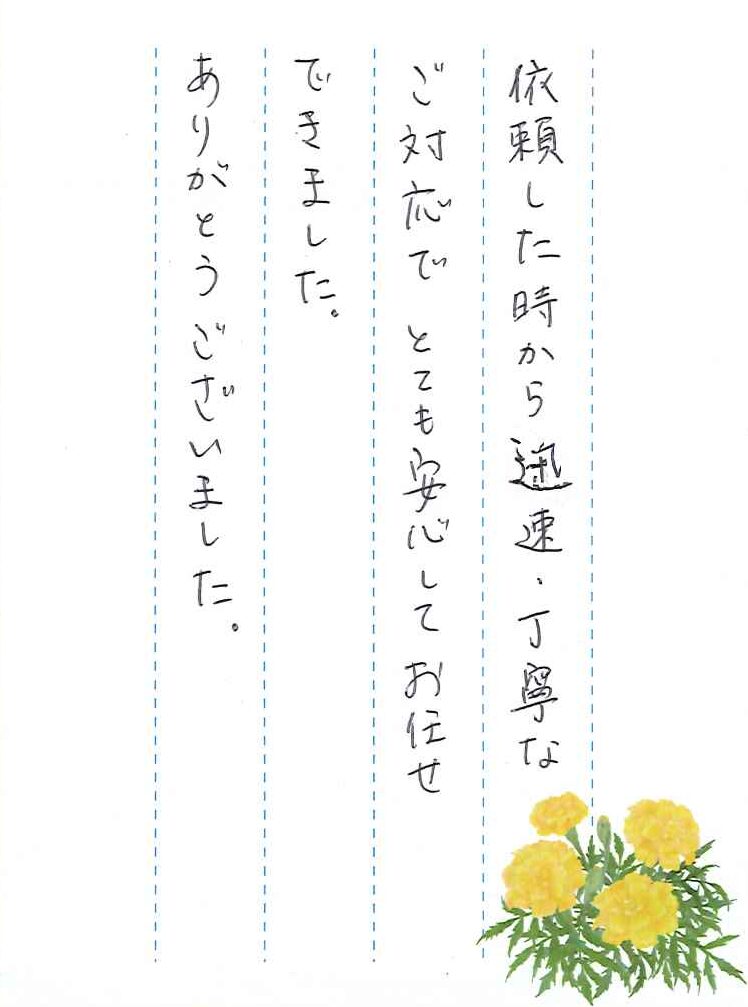 依頼した時から迅速・丁寧な
ご対応で とても安心して お任せ
できました。
ありがとうございました。